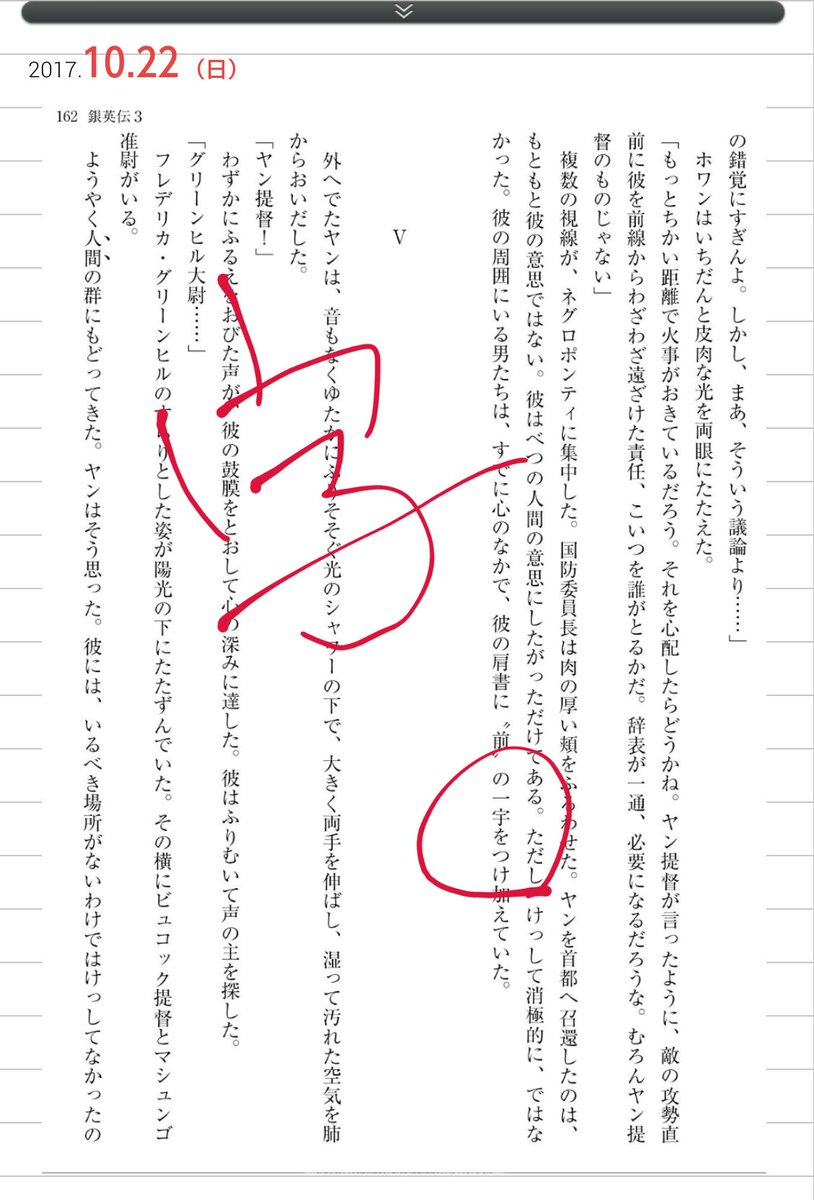 2017.10.22（日）
162 銀英伝3
の錯覚にすぎんよ。しかし、まあ、そういう議論より……」
ホワンはいちだんと皮肉な光を両眼にたたえた。
「もっとちかい距離で火事がおきているだろう。それを心配したらどうかね。ヤン提督が言ったように、敵の攻勢直
前に彼を前線からわざわざ遠ざけた責任、こいつを誰がとるかだ。辞表が一通、必要になるだろうな。むろんヤン提
督のものじゃない」
複数の視線が、ネグロポンティに集中した。国防委員長は肉の厚い頬をふるわせた。ヤンを首都へ召還したのは、
もともと彼の意思ではない。彼はべつの人間の意思にしたがっただけである。ただし、けっして消極的に、ではな
かった。彼の周囲にいる男たちは、すでに心のなかで、彼の肩書に〝前〟の一宇をつけ加えていた。
V
外へでたヤンは、音もなくゆたかにふりそそぐ光のシャワーの下で、大きく両手を伸ばし、湿って汚れた空気を肺
からおいだした。
「ヤン提督！」
わずかにふるえをおびた声が、彼の鼓膜をとおして心の深みに達した。彼はふりむいて声の主を探した。
「グリーンヒル大尉……」
フレデリカ・グリーンヒルのすらりとした姿が陽光の下にたたずんでいた。その横にビュコック提督とマシュンゴ
准尉がいる。
ようやく人間の群にもどってきた。ヤンはそう思った。彼には、いるべき場所がないわけではけっしてなかったの
字